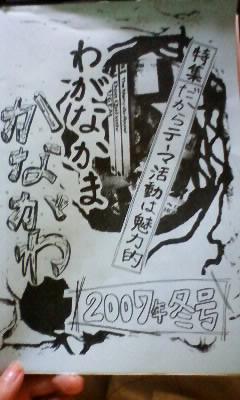 特集だからテーマ活動は魅力的
わがなかま
かながわ
2007年冬号